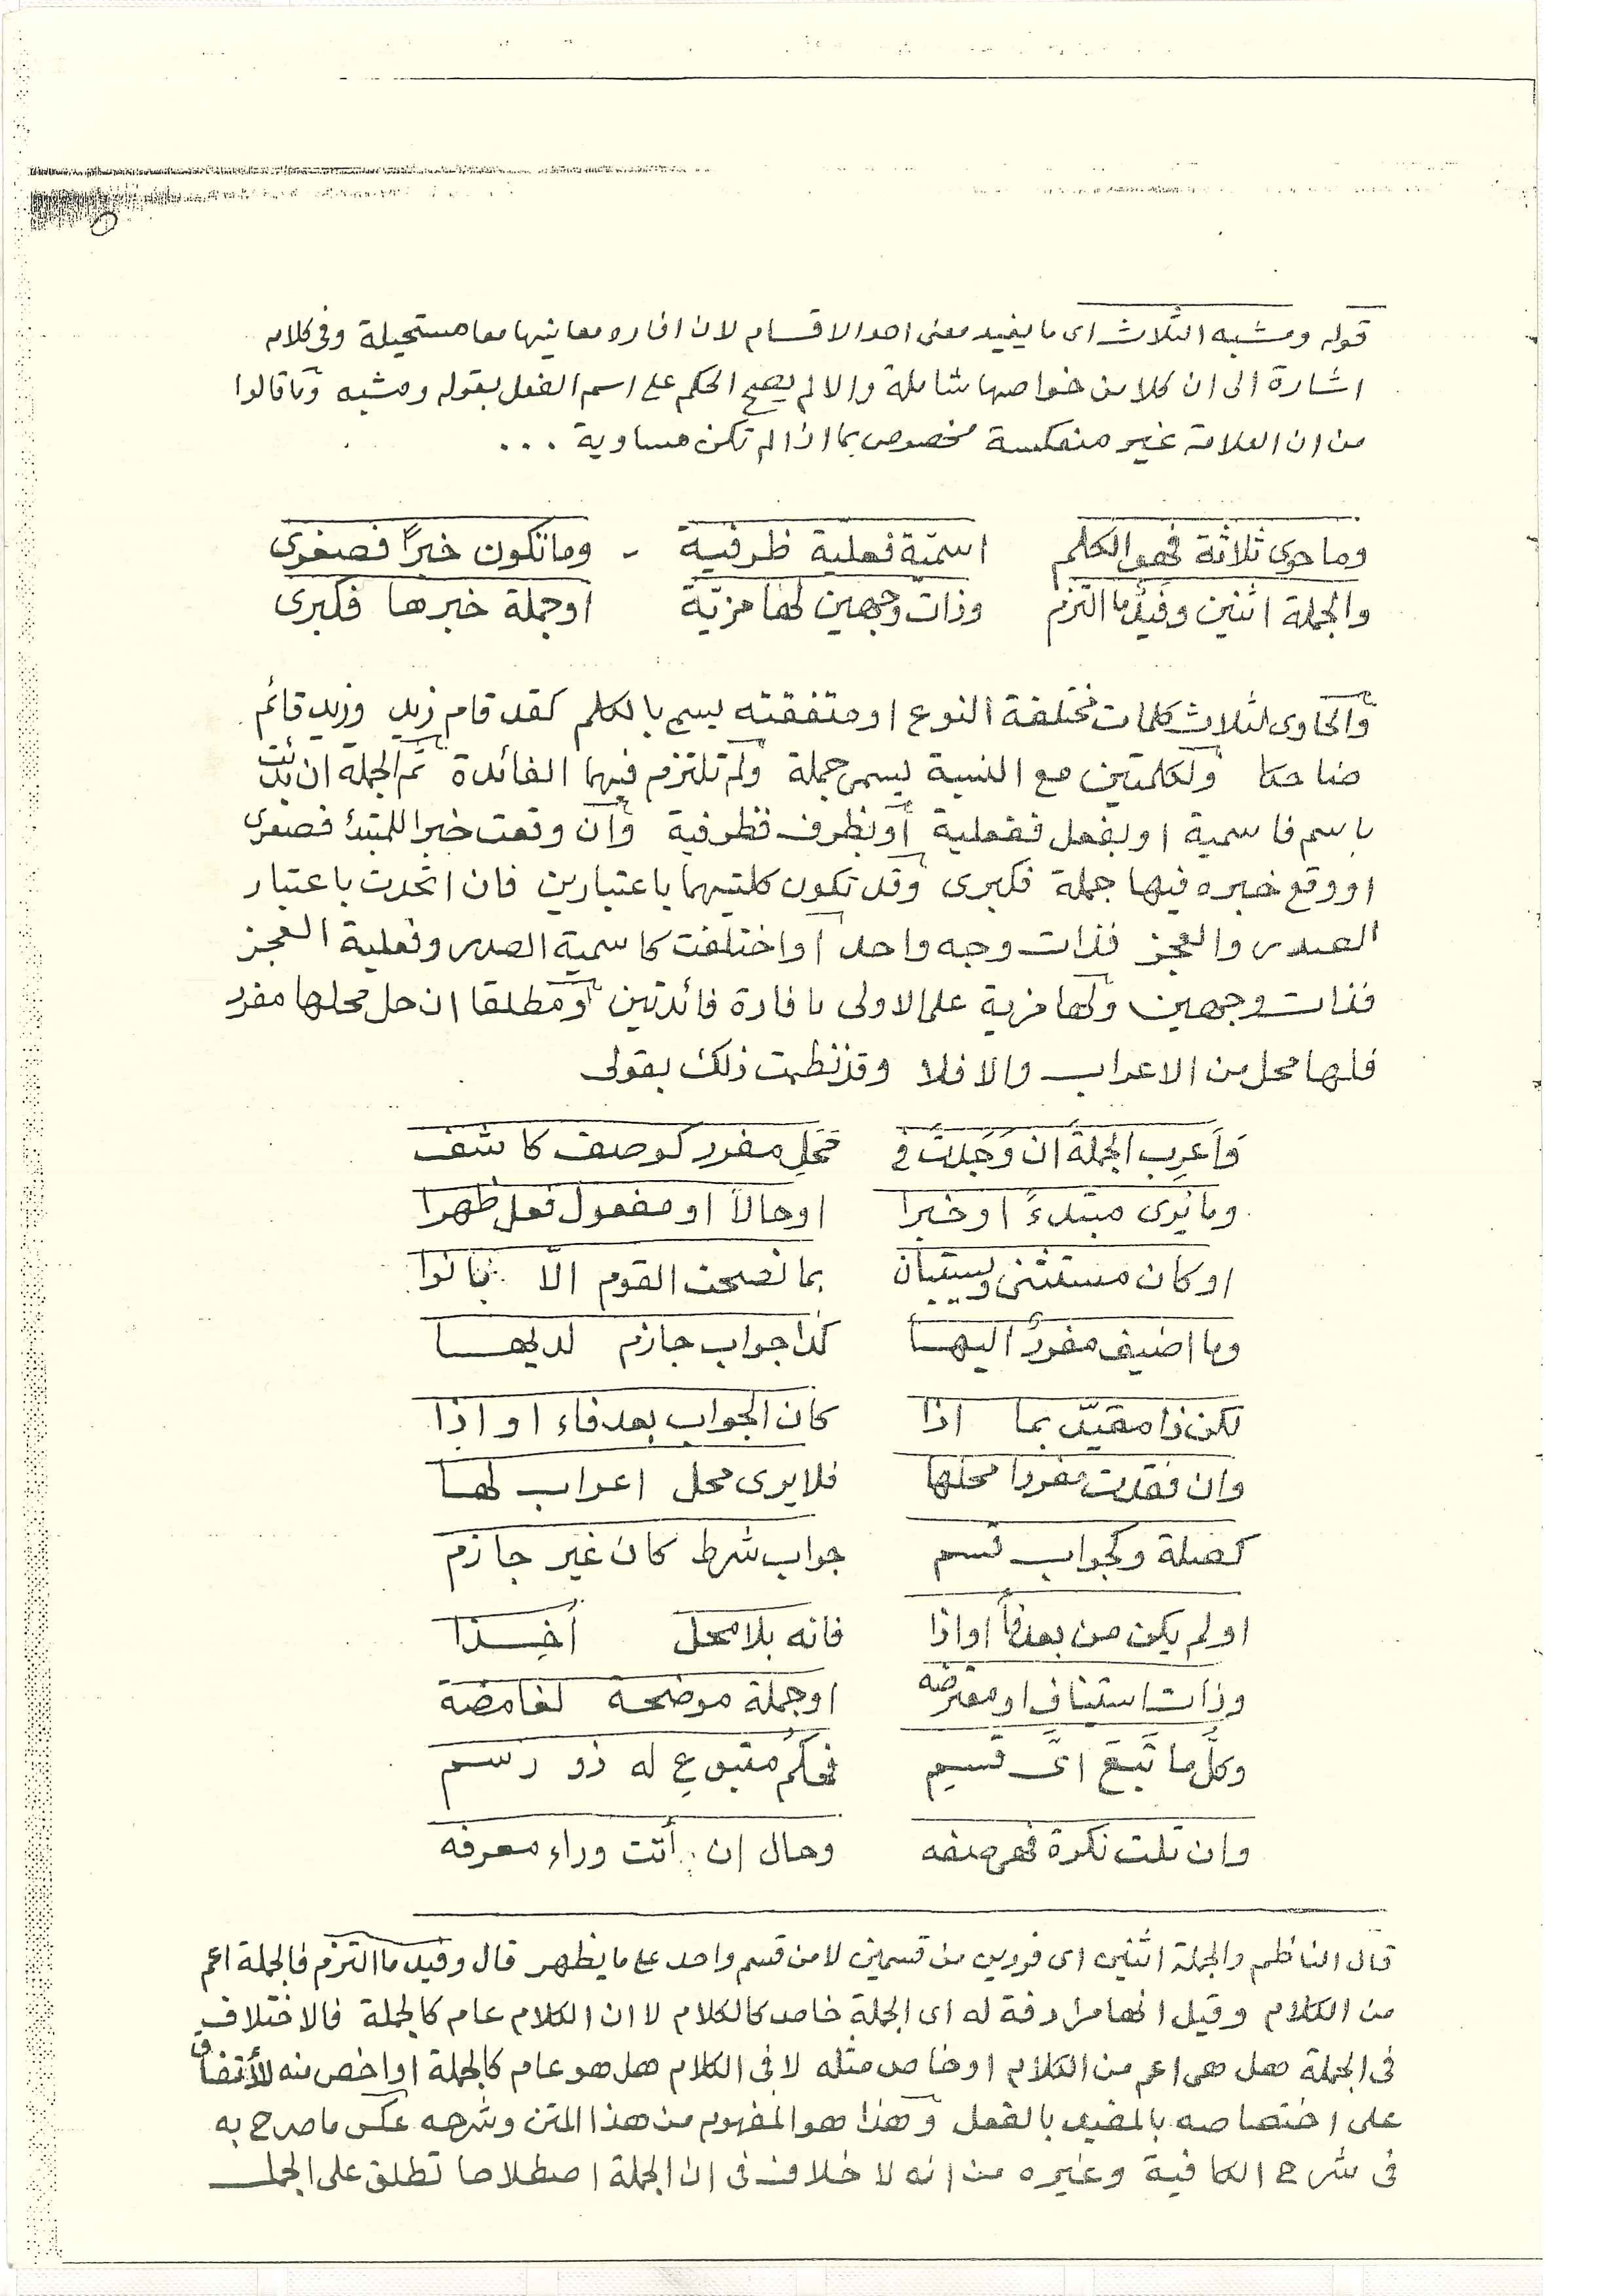 قوله ومشبه الثلاث اى ما يفيد معنى احد الاقسام لان افاده معانيها معا مستحيلة وفى كلامه
اشارة الى ان كلا من خواصها شاملة والا لم يصح الحكم على اسم الفعل بقوله ومشبه وما قالوا
من ان العلامة غير منعكسة مخصوص بما اذا لم تكن مساوية ...
وما حوى ثلاثة فهو الكلم اسميّة فعلية ظرفية - وما تكون خبرًا فصغرى
والجملة اثنين وفيد ما التزم وذات وجهين لها مزيّة او جملة خبرها فكبرى
والحاوى لثلاث كلمات مختلفة النوع او متفقته يسمى بالكلم كقد قام زيد وزيد قائم
ضاحكا ولكلمتين مع النسبة يسمى جملة ولم تلتزم فيها الفائدة ثم الجملة ان بدئت
باسم فاسمية او بفعل ففعلية أو بظرف فظرفية وان وقعت خبرا للمبتدأ فصغرى
او وقع خبره فيها جملة فكبرى وقد تكون كلتيهما باعتبارين فان اتحدت باعتبار
الصدر والعجز فذات وجه واحد او اختلفت كاسمية الصدر وفعلية العجز
فذات وجهين ولها مزية على الاولى بافادة فائدتين ومطلقا ان حل محلها مفرد
فلها محل من الاعراب والا فلا وقد نظمت ذلك بقولى
وَأعرِب الجملةَ ان وَجَلتْ فى مَحَلِ مفرد كوصف كاشف
وما يُرى مبتدءً او خبرا او حالاً او مفعول فعل ظهرا
او كان مستثنى ويستبان بما نصحت القوم الّا بانوا
وما اضيف مفردٌ اليها كذا جواب جازم لديها
لكن ذا مقيّد بما اذا كان الجواب بعد فاء او اذا
وان فقدت مفردا محلها فلا يرى محل اعراب لها
كصلة وكجواب قسم جواب شرط كان غير جازم
او لم يكن من بعد فاً او اذا فانه بلا محل أُخِذا
وذات استيناف او معترضه او جملة موضحة لغامضة
وكلَّ ما تَبِعَ اىَّ قَسيم فحكمُ متبوعِ له ذو رسم
وان تلت نكرة فهى صفه وحال ان أتت وراء معرفه
قال الناظم والجملة اثنين اى فردين من قسمين لا من قسم واحد على ما يظهر قال وفيد ما التزم فالجملة اعم
من الكلام وقيل انها مرادفة له اى الجملة خاص كالكلام لا ان الكلام عام كالجملة فالاختلاف
فى الجملة هل هى اعم من الكلام او خاص مثله لا فى الكلام هل هو عام كالجملة او اخص منه للأتفاق
على اختصاصه بالمفيد بالفعل وهذا هو المفهوم من هذا المتن وشرحه عكس ما صرح به
فى شرح الكافية وغيره من انه لا خلاف فى ان الجملة اصطلاحا تطلق على الجمل